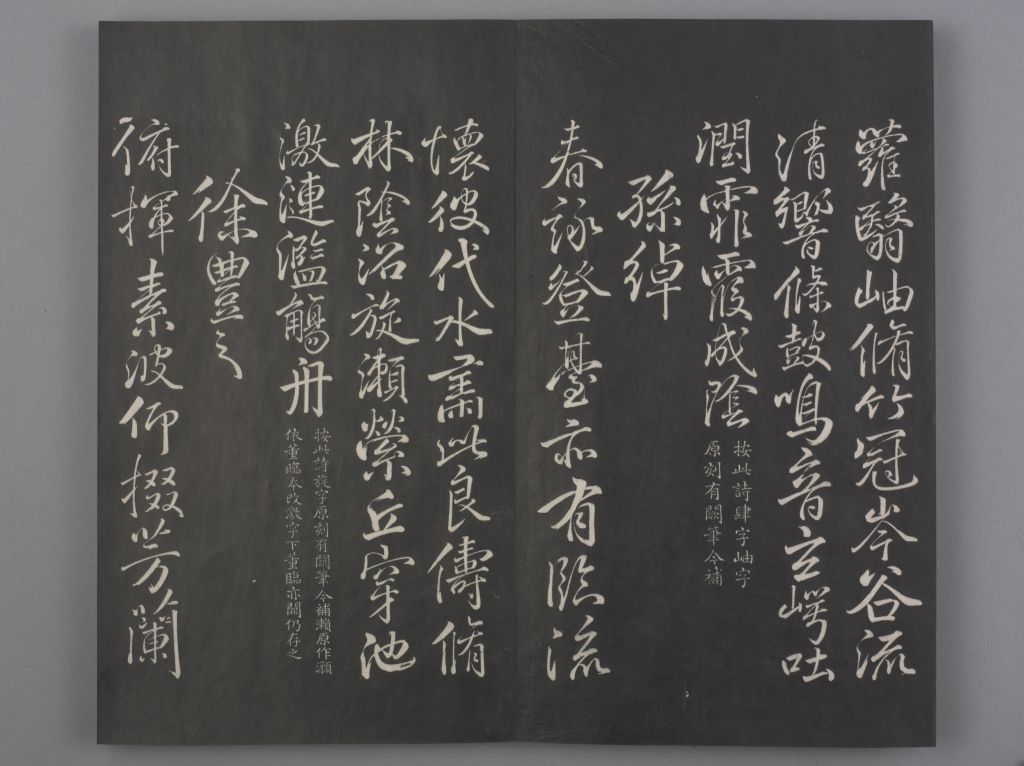 蘿翳岫脩竹冠岑谷流
清響條鼓鳴音玄崿吐
潤霏霧成陰
按此詩肆字岫字
原刻有闕筆今補
孫綽
春詠登臺亦有臨流
懷彼代木肅此良儔脩
林陰沼旋瀨縈丘穿池
激湍連濫觴舟
按此詩旋字原刻有闕筆今補瀨原作灝
依董臨本改激字下董臨亦闕仍存之
徐豐之
俯揮素波仰掇芳蘭